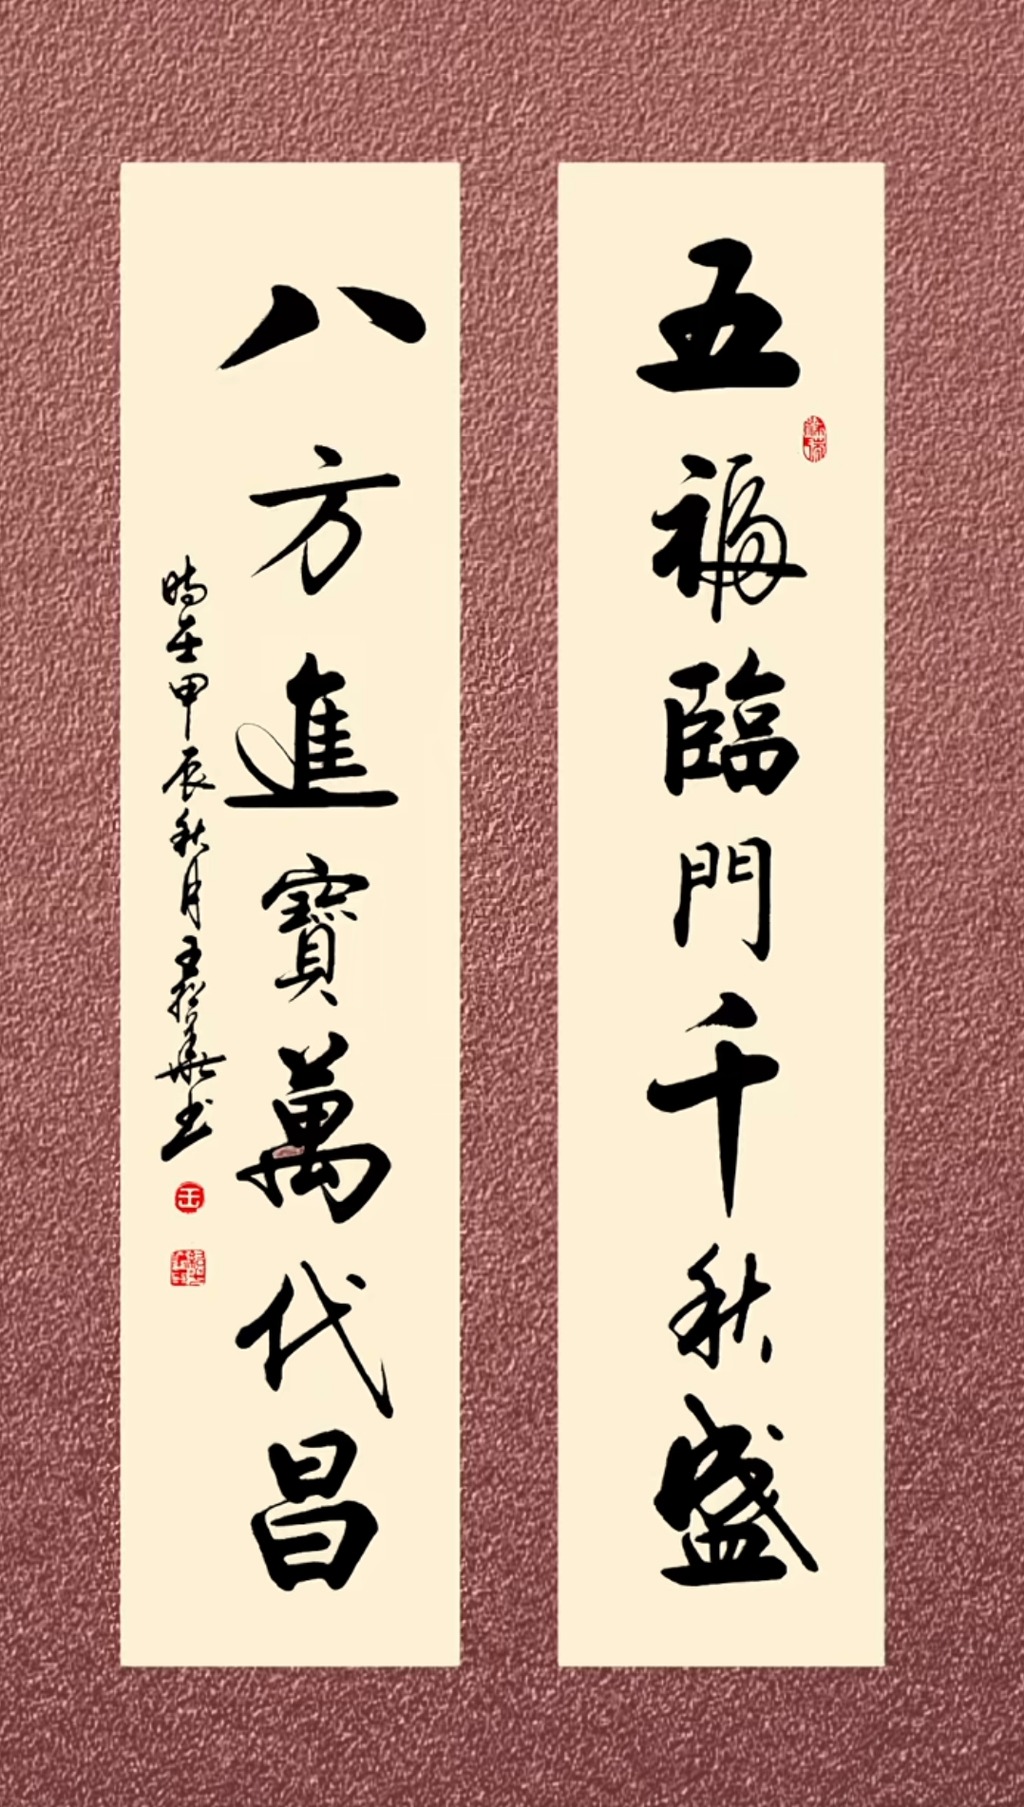 五福臨門千秋盛
八方進寶萬代昌
時在甲辰秋月王
書
王